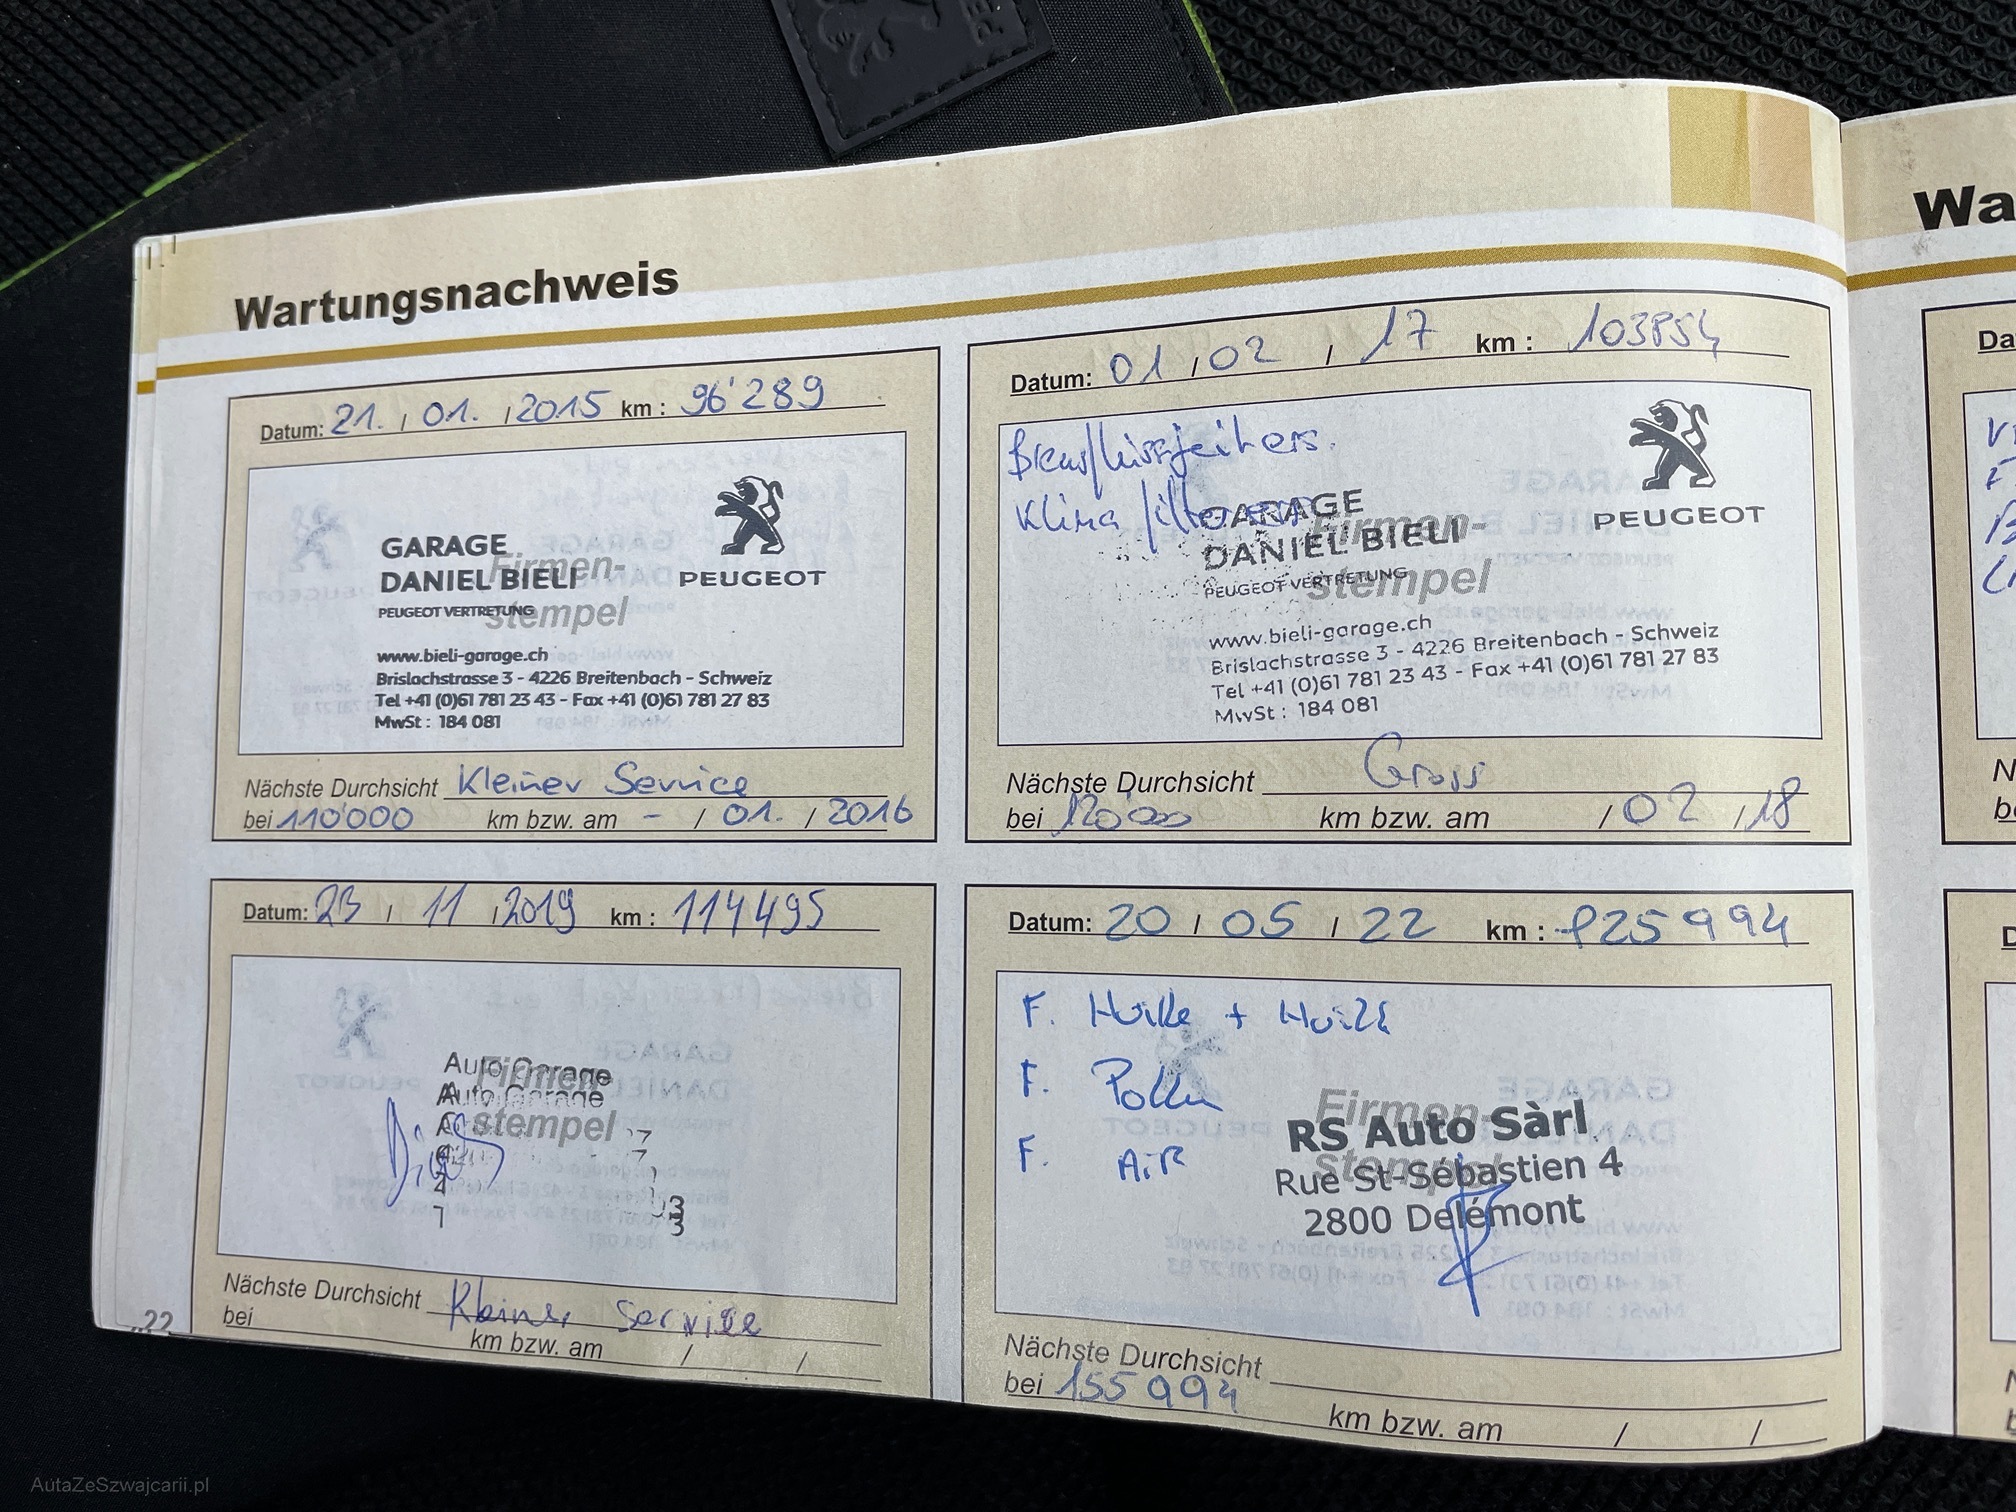 Wa
Wartungsnachweis
Datum: 21. / 01. / 2015 km : 96'289
GARAGE
DANIEL BIELI
Firmen-
stempel
PEUGEOT VERTRETUNG
PEUGEOT
www.bieli-garage.ch
Brislachstrasse 3 - 4226 Breitenbach - Schweiz
Tel +41 (0)61 781 23 43 - Fax +41 (0)61 781 27 83
MwSt : 184 081
Nächste Durchsicht Kleiner Service
bei 110'000 km bzw. am - / 01. / 2016
Datum: 01 / 02 / 17 km : 103854
Klima filter
GARAGE
DANIEL BIELI
Firmen-
stempel
PEUGEOT VERTRETUNG
PEUGEOT
www.bieli-garage.ch
Brislachstrasse 3 - 4226 Breitenbach - Schweiz
Tel +41 (0)61 781 23 43 - Fax +41 (0)61 781 27 83
MwSt : 184 081
Nächste Durchsicht Gross
bei 120'000 km bzw. am / 02 / 18
Datum: 23 / 11 / 2019 km : 114495
Auto Garage
Auto Garage
Firmen-
stempel
Nächste Durchsicht Kleiner Service
bei km bzw. am / /
22
Datum: 20 / 05 / 22 km : 125994
F. Huile + Huile
F. Pollen
F. AiR
Firmen-
stempel
RS Auto Sàrl
Rue St-Sébastien 4
2800 Delémont
Nächste Durchsicht
bei 155994 km bzw. am / /
AutaZeSzwajcarii.pl